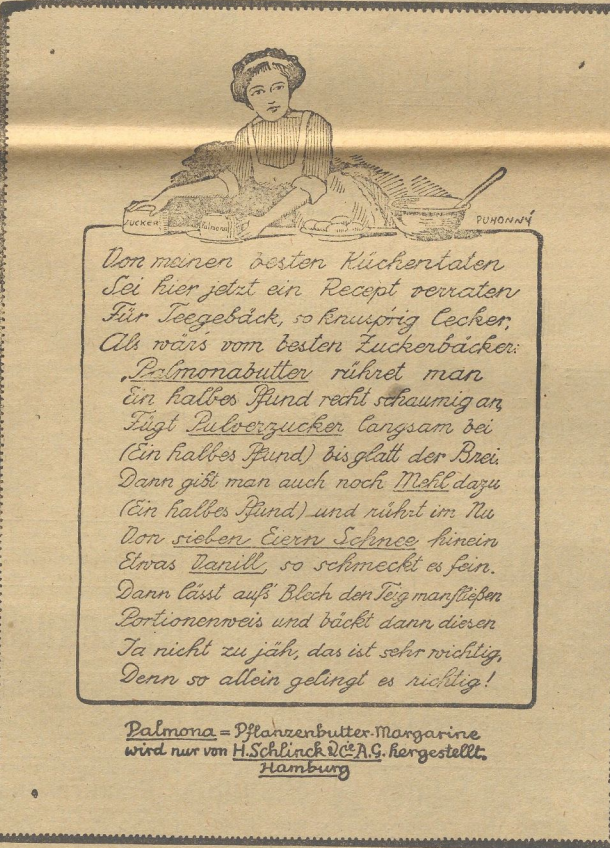 ZUCKER
Palmona
PUHONNÝ
Von meinen besten Küchentaten
Sei hier jetzt ein Recept verraten
Für Teegebäck, so knusprig lecker,
Als wärs vom besten Zuckerbäcker:
„Palmonabutter rühret man
Ein halbes Pfund recht schaumig an,
Fügt Pulverzucker langsam bei
(Ein halbes Pfund) bis glatt der Brei.
Dann gibt man auch noch Mehl dazu
(Ein halbes Pfund) und rührt im Nu
Von sieben Eiern Schnee hinein
Etwas Vanill, so schmeckt es fein.
Dann lässt aufs Blech den Teig man fließen
Portionenweis und bäckt dann diesen
Ja nicht zu jäh, das ist sehr wichtig,
Denn so allein gelingt es richtig!
Palmona = Pflanzenbutter-Margarine
wird nur von H. Schlinck & Cie A.G. hergestellt.
Hamburg